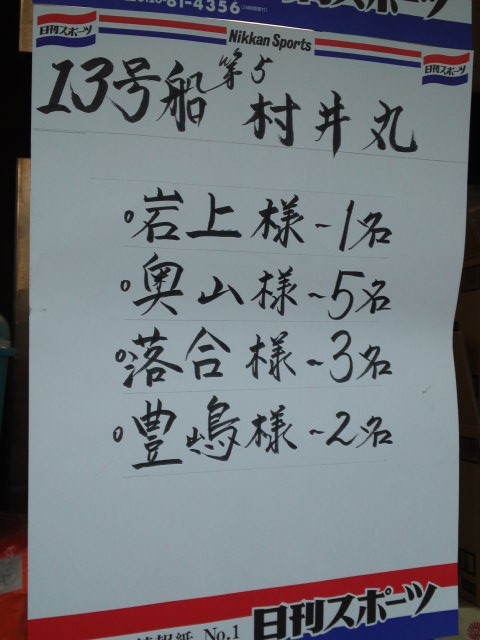 81-4356
日刊スポーツ
Nikkan Sports
日刊スポーツ
13号船 第5 村井丸
。岩上様~1名
。奥山様~5名
。落合様~3名
。豊嶋様~2名
情報紙 No.1 日刊スポーツ